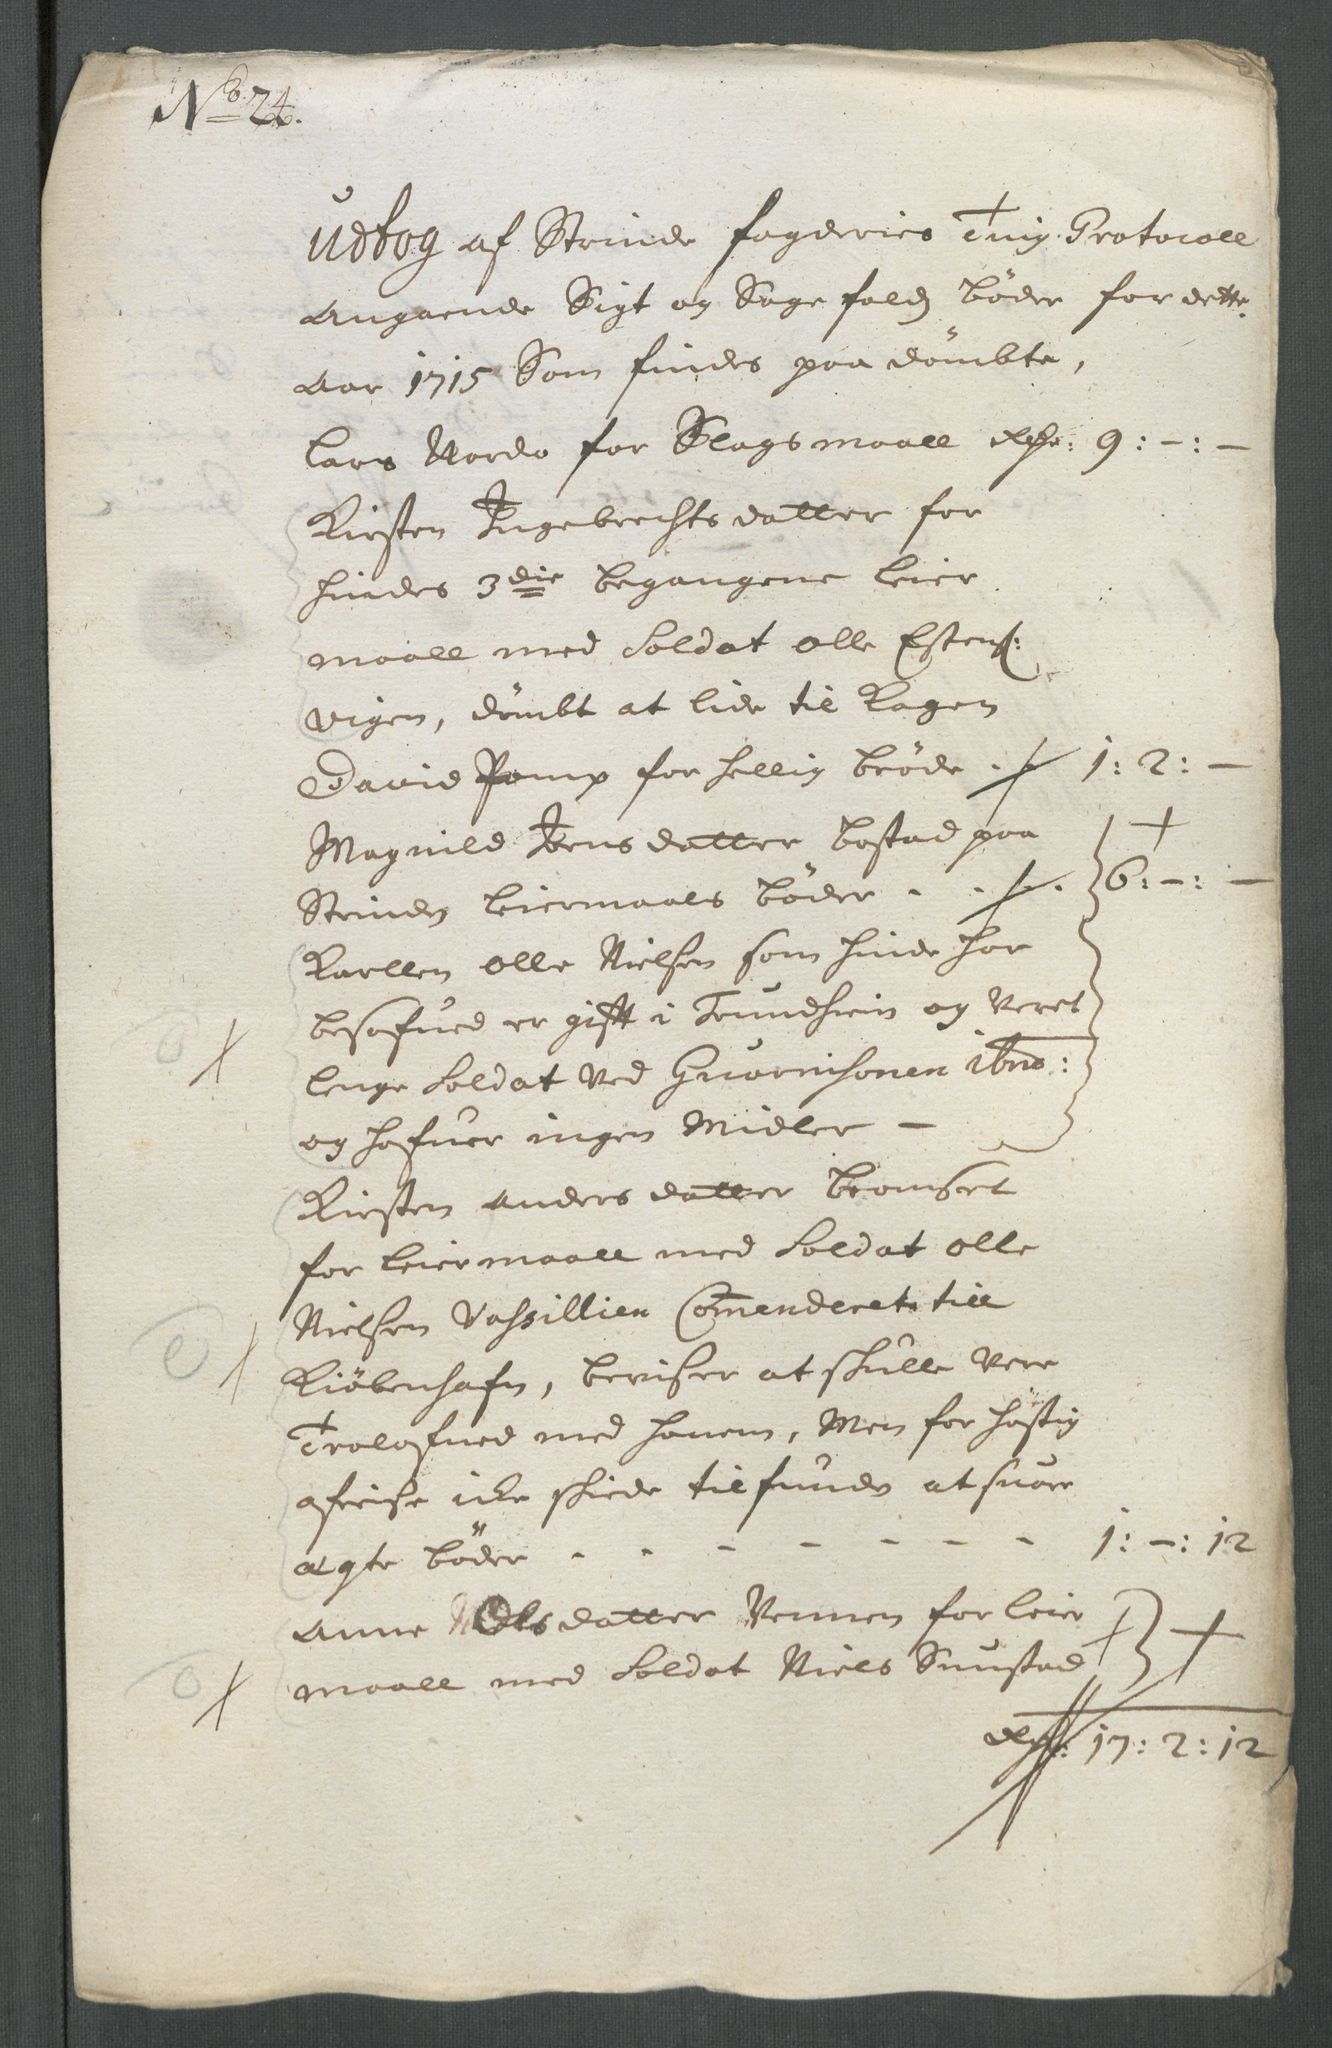 No 24.
Udtog af Strinde fogderies Ting Protocoll
Angaaende Sigt og Sage falds bøder for dette
Aar 1715 Som findes paa dømbte,
Lars Nordo for Slagsmaall dlr: 9: -: -
Kirsten Ingebrechts datter for
hindes 3die begangene leier
maall med Soldat Olle Estens:
vigen, dømbt at lide til Kagen
David Pomp for hellig brøde 1: 2: -
Magnild Jensdatter bostad paa
Strinden leiermaals bøder - - 6: -: -
Karllen Olle Nielsen som hinde har
besofued er gift i Trundhiem og veret
lenge Soldat ved Guarnisonen ibnd:
og hafuer ingen Midler -
Kirsten Anders datter Bromset
for leiermaall med Soldat Olle
Nielsen Vassillien Commenderet till
Kiöbenhafn, beviser at skulle vere
Trolofued med hanem, Men for hastig
afreise icke skiede tilfunden at suare
Agte bøder - - - - - - - 1: -: 12
Anne Olsdatter Vennen for leier
maall med Soldat Niels Sunstad
dlr: 17: 2: 12